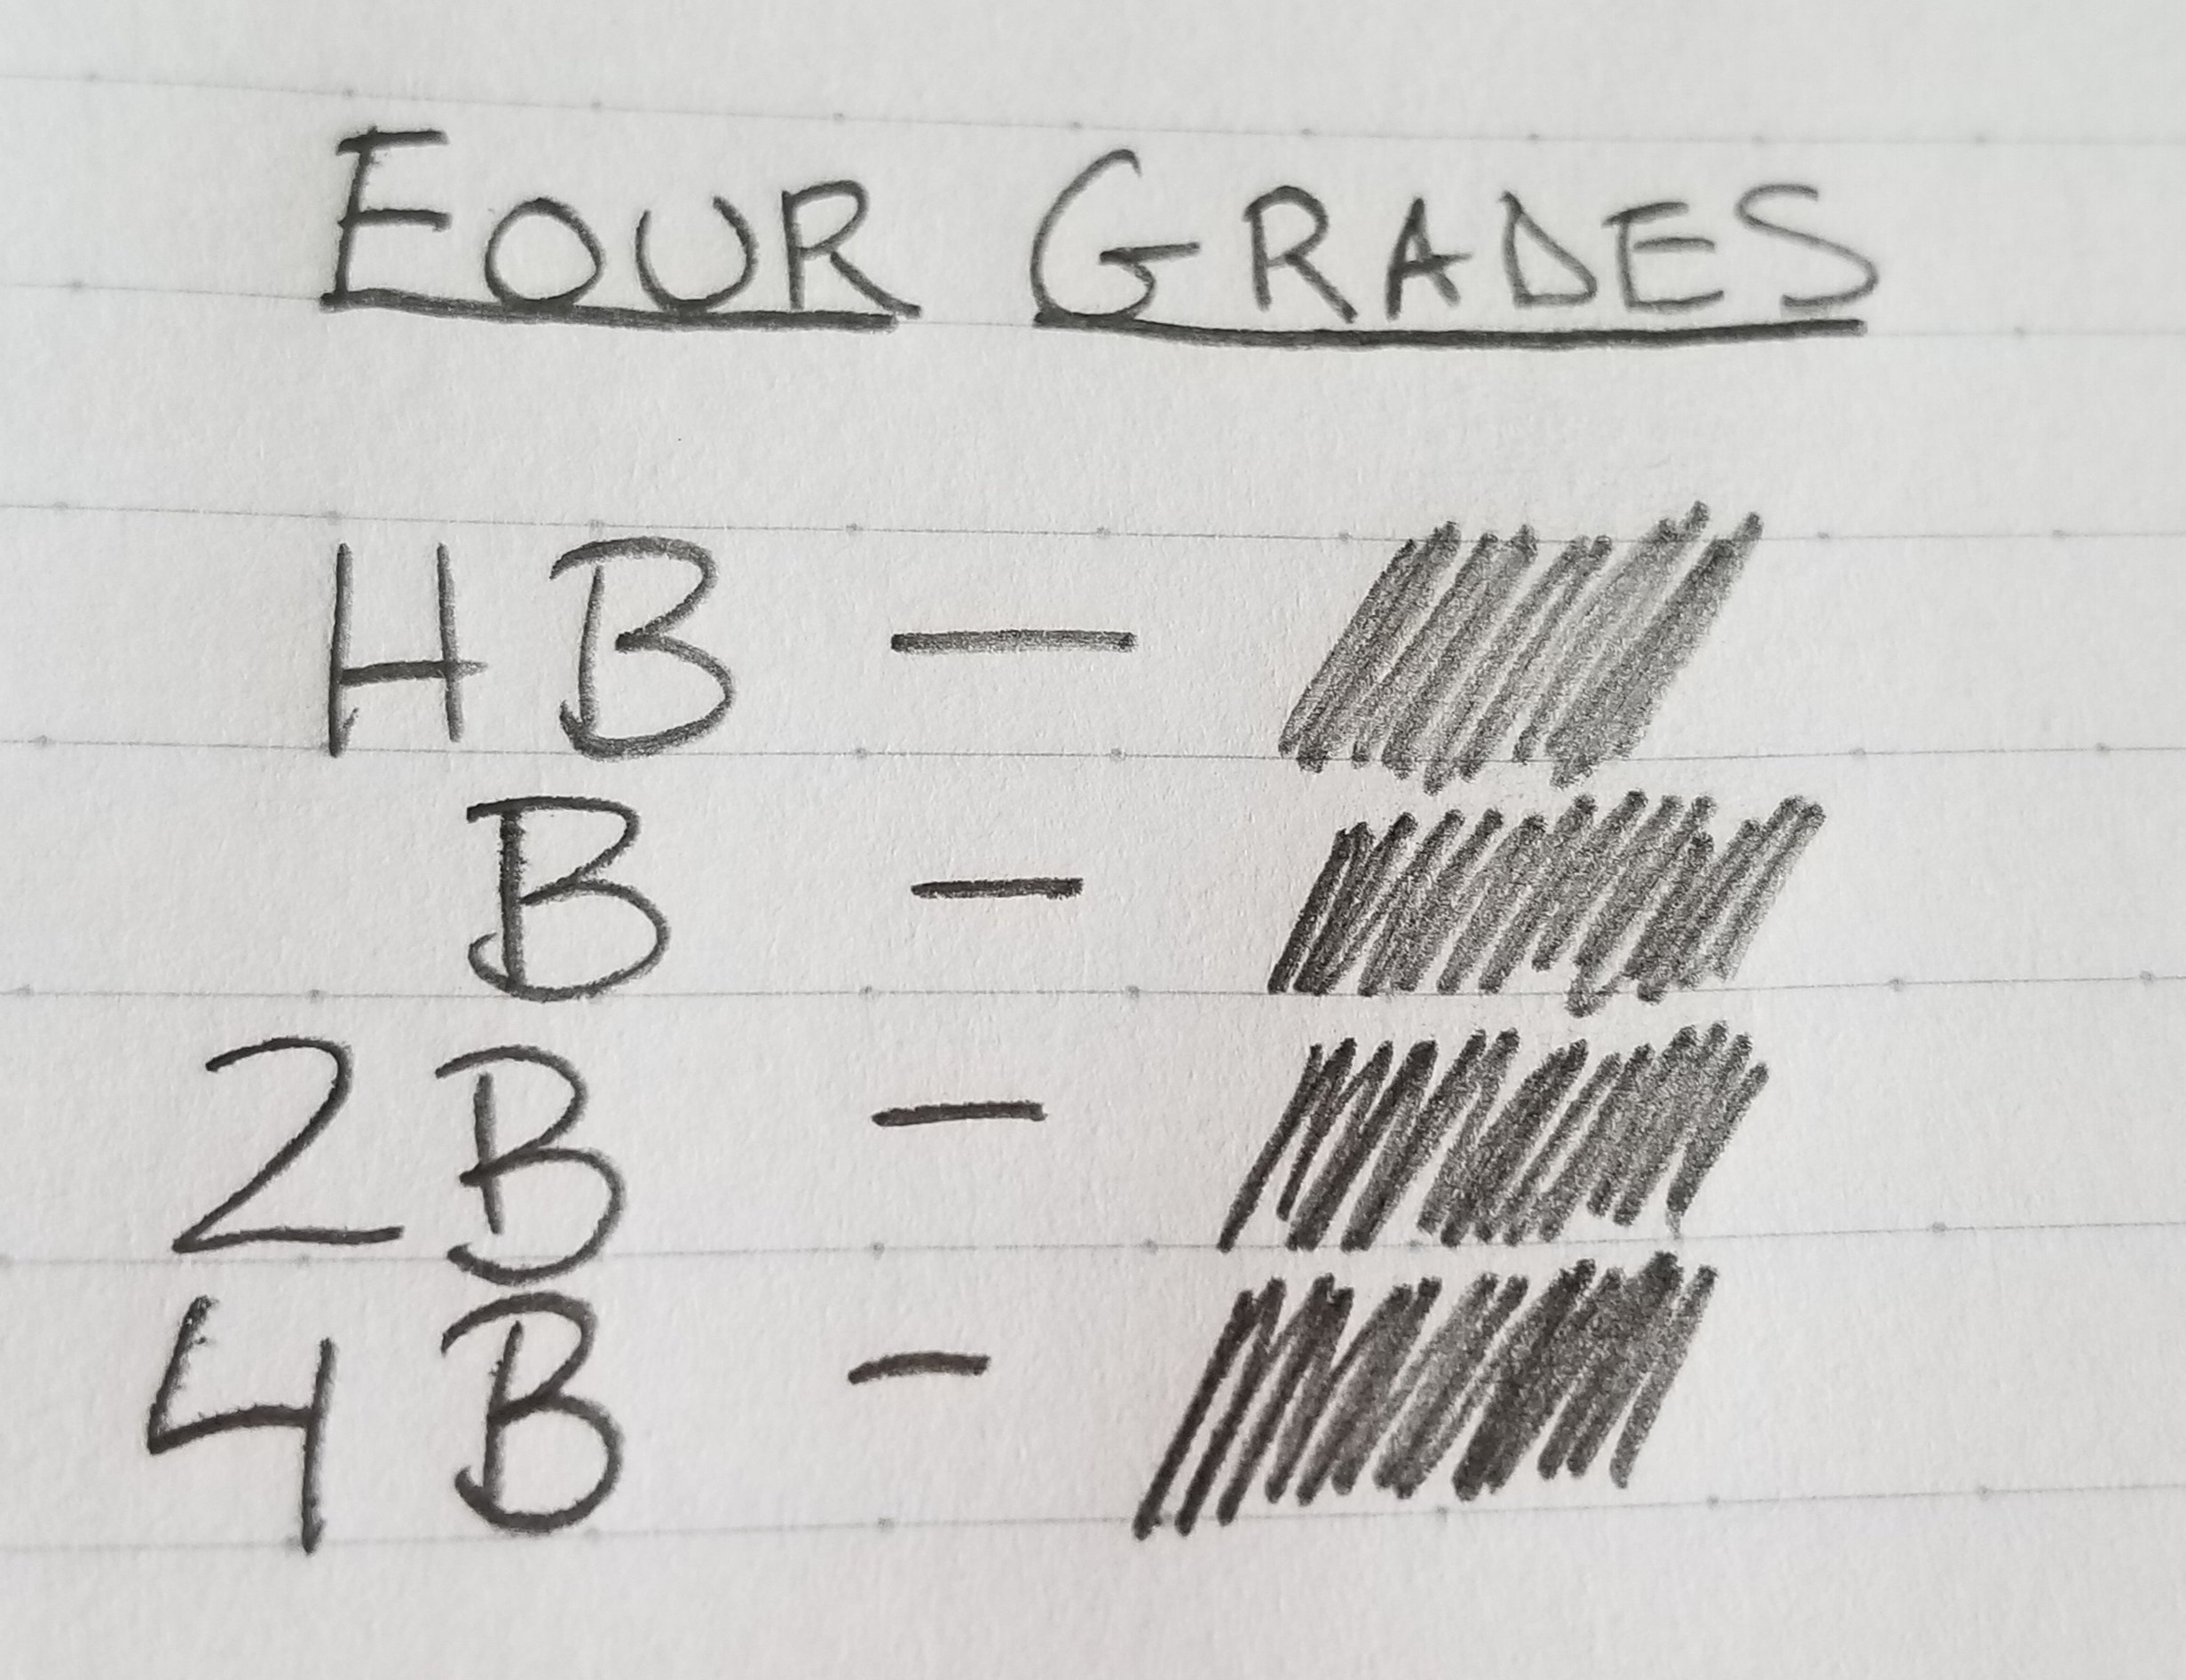 FOUR GRADES
HB —
B —
2B —
4B —